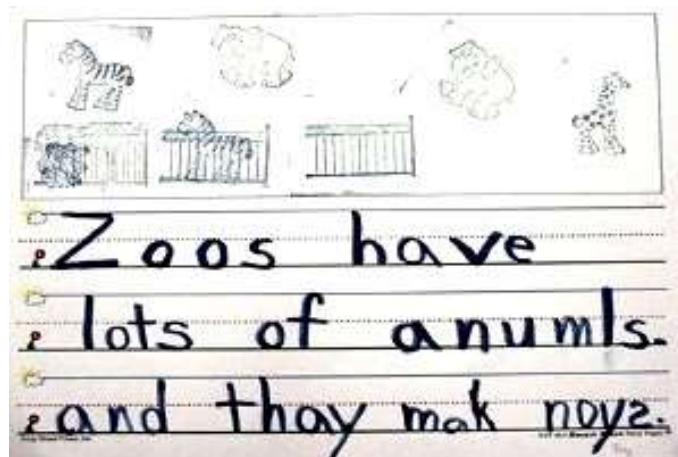 Zoos have
lots of anumls.
and thay mak noys.